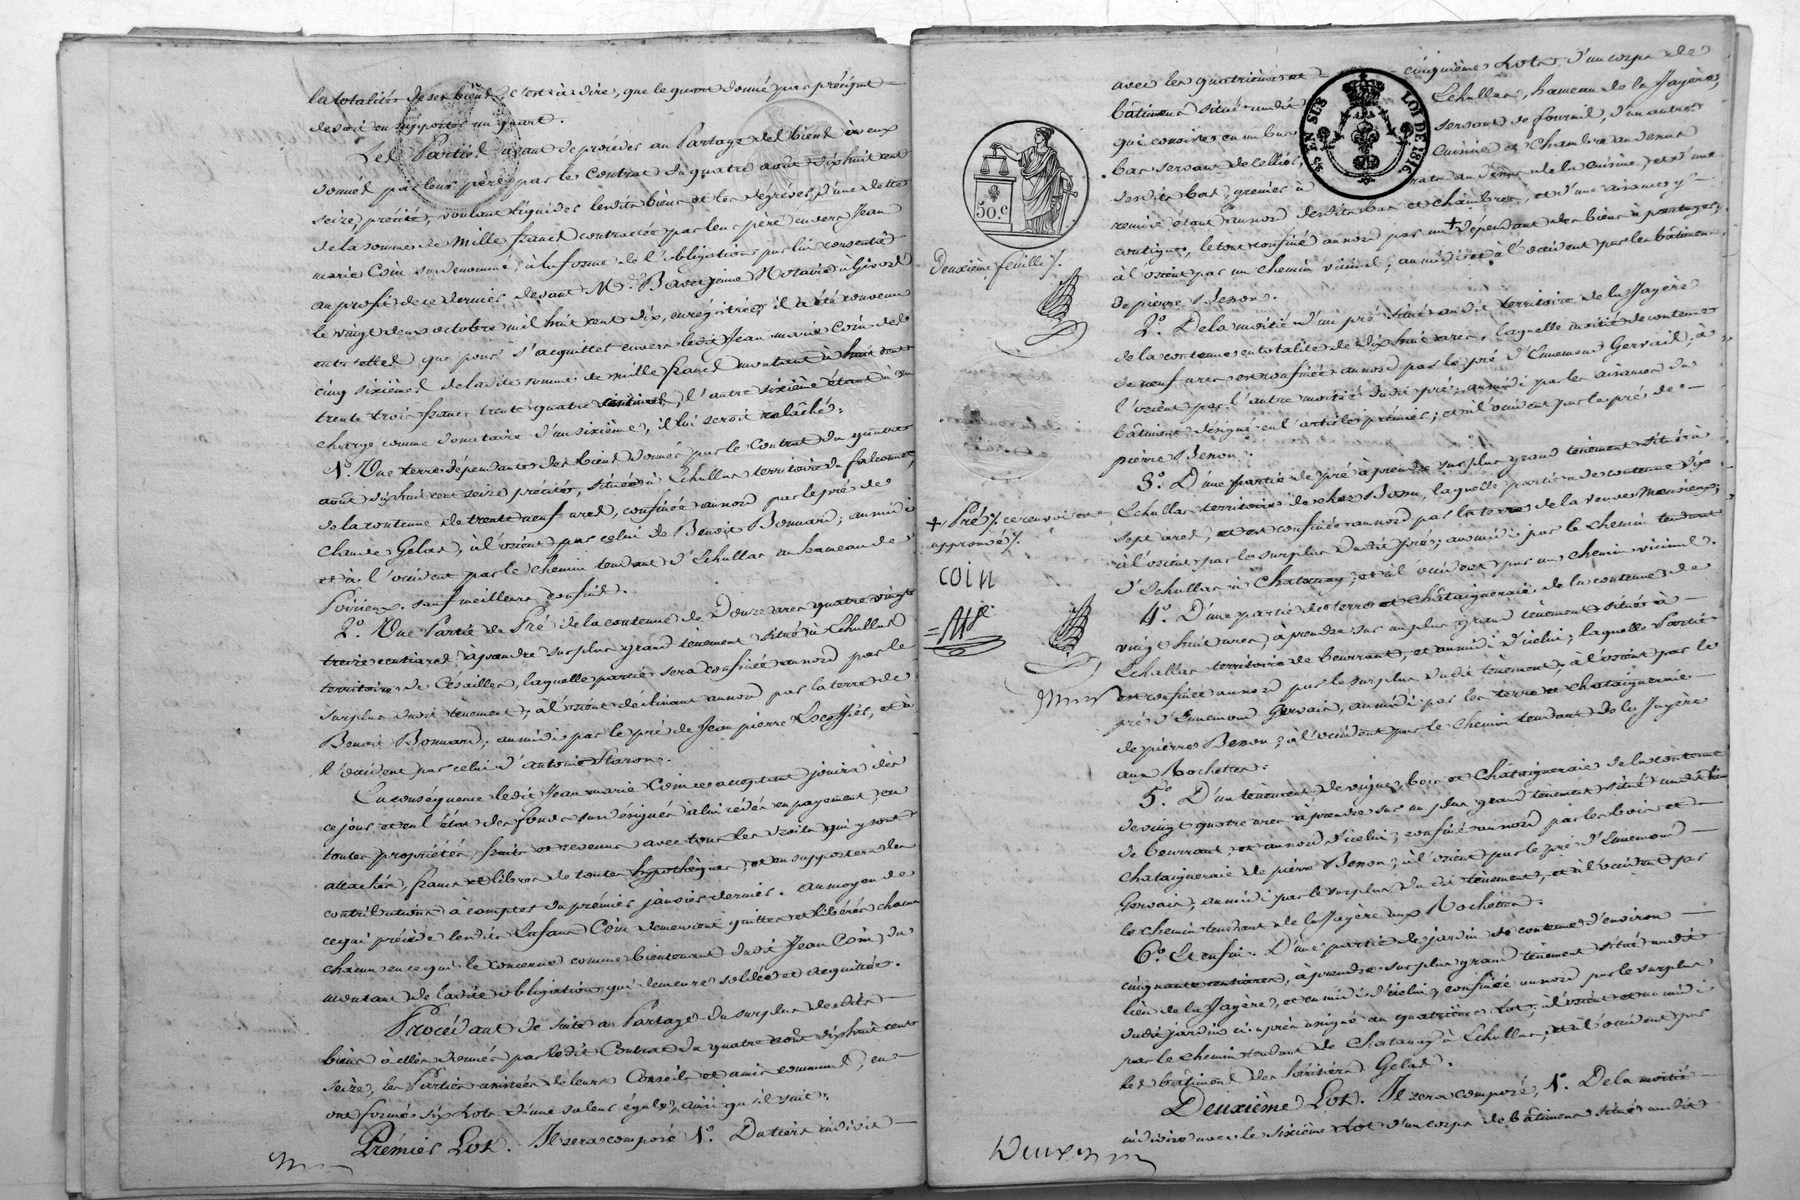 la totalité de ses biens, c'est à dire, que le quart donné par préciput
devoit en supporter un quart.
Les Parties avant de procéder au Partage des biens à eux
donnés par leur père par le Contrat du quatre août dix huit cent
seize, précité, voulant liquider lesdits biens et les dégréver d'une dette
de la somme de Mille francs contractée par leur père envers Jean
marie Coin surdenommé, à la forme de l'obligation par lui consentie
au profit de ce dernier devant Me Notaire à
le vingt deux octobre mil huit cent dix, enrégistrée; il a été convenu
entr'elles que pour s'acquitter envers ledit Jean marie Coin de
cinq sixièmes de ladite somme de mille francs montant à huit cent
trente trois francs trente quatre centimes, l'autre sixième étant à sa
charge comme donataire d'un sixième, il lui seroit relâché:
1°. Une terre dépendante des biens donnés par le Contrat du quatre
août dix huit cent seize précité, située à Echullas territoire du
de la contenue de trente neuf ares, confinée au nord par le pré de
Claude Gelas, à l'orient par celui de Benoit Bonnard; au midi
et à l'occident par le chemin tendant d'Echullas au hameau de
Poirieux. sauf meilleurs confins.
2°. Une Partie de Pré de la contenue de Douze ares quatre vingt
treize centiares à prendre sur plus grand tènement situé à Echullas
territoire de Césailles, laquelle partie sera confinée au nord par le
surplus dudit tènement, à l'orient déclinant au nord par la terre de
Benoit Bonnard; au midi par le pré de Jean pierre et à
l'occident par celui d'antoine
En conséquence ledit Jean marie Coin ce acceptant jouira dès
ce jour et en l'état des fonds susdésignés à lui cédés en payement, en
toute propriété, fruits et revenus avec tous les droits qui y sont
attachés, francs et libres de toutes hypothèques, et en supportera les
contributions à compter du prémier janvier dernier. au moyen de
ce qui précède lesdits Enfans Coin demeurent quittes et libérés chacun
chacun en ce qui le concerne comme bientenant dudit Jean Coin, du
montant de ladite obligation qui demeure soldée et acquittée.
Procédant de suite au Partage du surplus desdits
biens à elles donnés par ledit Contrat du quatre août dix huit cent
seize, les Parties assistées de leurs Conseils et amis communs, en
ont formé six Lots d'une valeur égale, ainsi qu'il suit:
Prémier Lot. Il sera composé 1°. Du tiers indivis
50.c
25 EN SUS LOI DE 1816
Deuxième feuille
+ Pré ce renvoi est
approuvé
coin
avec les quatrième et cinquième Lots d'un corps de
bâtimens situé audit Echullas, hameau de la Jayère,
qui consiste en un bas servant de fournil, d'un autre
bas servant de cellier, Cuisine et Chambre au dessus
desdits bas, grenier à au dessus de la Cuisine, et d'une
remise étant au nord desdits bas et chambres, et d'une aisance y
contigue, le tout confiné au nord par un + dépendant des biens à partager;
à l'orient par un chemin vicinal; au midi et à l'occident par les bâtimens
de pierre Benon.
2°. De la moitié d'un pré situé audit territoire de la Jayère
de la contenue en totalité de dix huit ares, laquelle moitié de contenue
de neuf ares est confinée au nord par le pré d'Ennemond Gervais; à
l'orient par l'autre moitié dudit pré; au midi par les aisances du
bâtiment désigné en l'article prémier; et à l'occident par le pré de
pierre Benon.
3°. D'une partie de pré à prendre sur plus grand tènement situé à
Echullas territoire de chez Bonn, laquelle partie de contenue dix
sept ares, est confinée au nord par la terre de la veuve Monvieux;
à l'orient par le surplus dudit pré; au midi par le chemin tendant
d'Echullas à Chatanay; et à l'occident par un chemin vicinal.
4°. D'une partie de terre et Châtaigneraie de la contenue de
vingt huit ares, à prendre sur un plus grand tènement situé à
Echullas territoire de beurrant, et au midi d'icelui; laquelle Partie
est confinée au nord par le surplus dudit tènement; à l'orient par le
pré d'Ennemond Gervais, au midi par les terre et chataigneraie
de pierre Benon; à l'occident par le chemin tendant de la Jayère
aux Rochettes.
5°. D'un tènement de vigne, bois et Châtaigneraie de la contenue
de vingt quatre ares à prendre sur un plus grand tènement situé audit lieu
de beurrant, et au nord d'icelui; confiné au nord par les bois et
chataigneraie de pierre Benon; à l'orient par le pré d'Ennemond
Gervais; au midi par le surplus du dit tènement; et à l'occident par
le chemin tendant de la Jayère aux Rochettes.
6°. Et enfin. D'une partie de jardin de contenue d'environ
cinquante centiares, à prendre sur plus grand tènement situé audit
lieu de la Jayère, et au midi d'icelui, confinée au nord par le surplus
dudit jardin ci-après assigné au quatrième Lot; à l'orient et au midi
par le chemin tendant de Chatanay à Echullas; et à l'occident par
les bâtimens des héritiers Gelas.
Deuxième Lot. Il sera composé, 1°. De la moitié
indivise avec le sixième Lot d'un corps de bâtimens situé audit